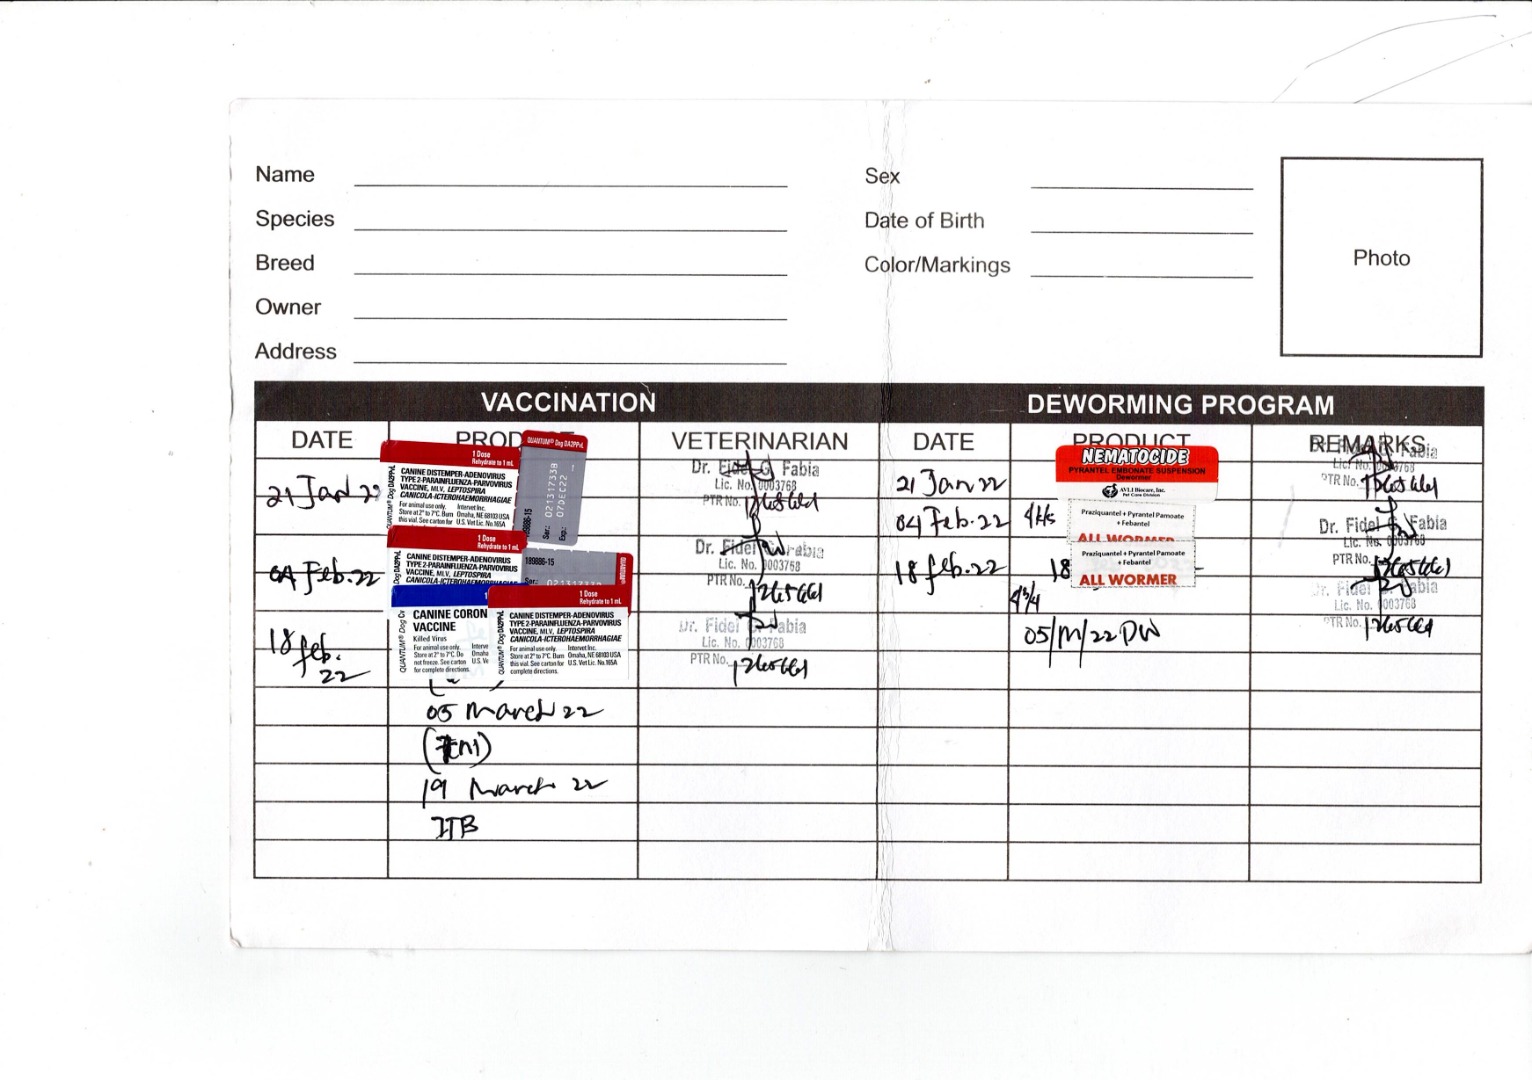 Name
Species
Breed
Owner
Address
Sex
Date of Birth
Color/Markings
Photo
VACCINATION
DATE PRODUCT VETERINARIAN
21 Jan 22
1 Dose
Rehydrate to 1 mL
CANINE DISTEMPER-ADENOVIRUS
TYPE 2-PARAINFLUENZA-PARVOVIRUS
VACCINE, MLV, LEPTOSPIRA
CANICOLA-ICTEROHAEMORRHAGIAE
For animal use only. Intervet Inc.
Store at 2° to 7°C. Burn Omaha, NE 68103 USA
this vial. See carton for U.S. Vet Lic. No. 165A
QUANTUM® Dog DA2PPvL
QUANTUM® Dog DA2PPvL
189886-15
Ser.: 02131733B
Exp.: 07DEC22
Dr. Fidel G. Fabia
Lic. No. 0003768
PTR No. 1265661
04 Feb. 22
1 Dose
Rehydrate to 1 mL
CANINE DISTEMPER-ADENOVIRUS
TYPE 2-PARAINFLUENZA-PARVOVIRUS
VACCINE, MLV, LEPTOSPIRA
CANICOLA-ICTEROHAEMORRHAGIAE
Dog DA2PPvL
189886-15
Ser.:
QUANTUM®
Dr. Fidel G. Fabia
Lic. No. 0003768
PTR No. 1265661
18 feb. 22
1
CANINE CORON
VACCINE
Killed Virus
For animal use only. Interve
Store at 2° to 7°C. Do Omaha
not freeze. See carton U.S. Ve
for complete directions.
QUANTUM® Dog Cv
1 Dose
Rehydrate to 1 mL
CANINE DISTEMPER-ADENOVIRUS
TYPE 2-PARAINFLUENZA-PARVOVIRUS
VACCINE, MLV, LEPTOSPIRA
CANICOLA-ICTEROHAEMORRHAGIAE
For animal use only. Intervet Inc.
Store at 2° to 7°C. Burn Omaha, NE 68103 USA
this vial. See carton for U.S. Vet Lic. No. 165A
complete directions.
QUANTUM® Dog DA2PPvL
Dr. Fidel G. Fabia
Lic. No. 0003768
PTR No. 1265661
05 March 22
19 March 22
DEWORMING PROGRAM
DATE PRODUCT REMARKS
21 Jan 22
NEMATOCIDE
PYRANTEL EMBONATE SUSPENSION
Dewormer
AVLI Biocare, Inc.
Pet Care Division
Fabia
Lic. No. 0003768
PTR No. 1265661
04 Feb. 22
Praziquantel + Pyrantel Pamoate
+ Febantel
ALL WORMER
Dr. Fidel G. Fabia
Lic. No. 0003768
PTR No. 1265661
18 feb. 22 18
Praziquantel + Pyrantel Pamoate
+ Febantel
ALL WORMER
Dr. Fidel G. Fabia
Lic. No. 0003768
PTR No. 1265661
05/M/22 DW